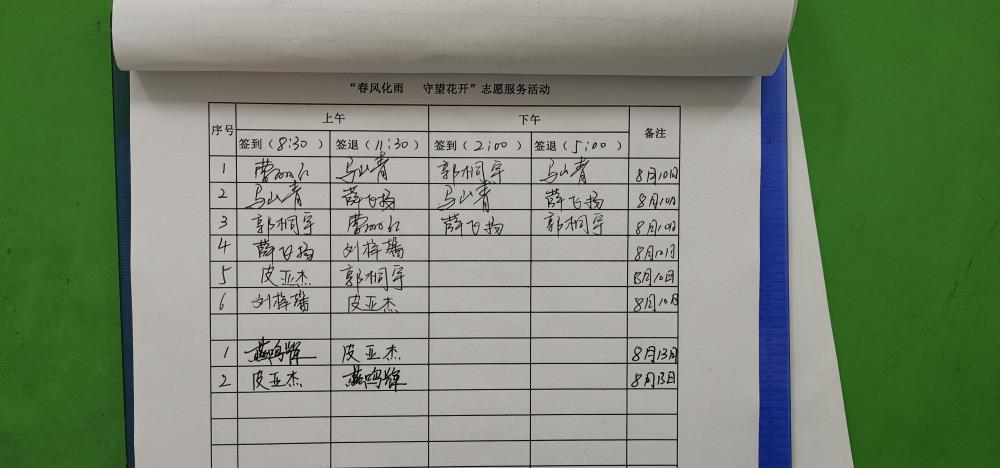 “春风化雨 守望花开”志愿服务活动
序号 上午 下午 备注
签到（8:30） 签退（11:30） 签到（2:00） 签退（5:00）
1 马山青 郭桐宇 马山青 8月10日
2 马山青 薛飞扬 马山青 薛飞扬 8月10日
3 郭桐宇 薛飞扬 郭桐宇 8月10日
4 薛飞扬 刘梓璐 8月10日
5 皮亚杰 郭桐宇 8月10日
6 刘梓璐 皮亚杰 8月10日
1 皮亚杰 8月13日
2 皮亚杰 8月13日